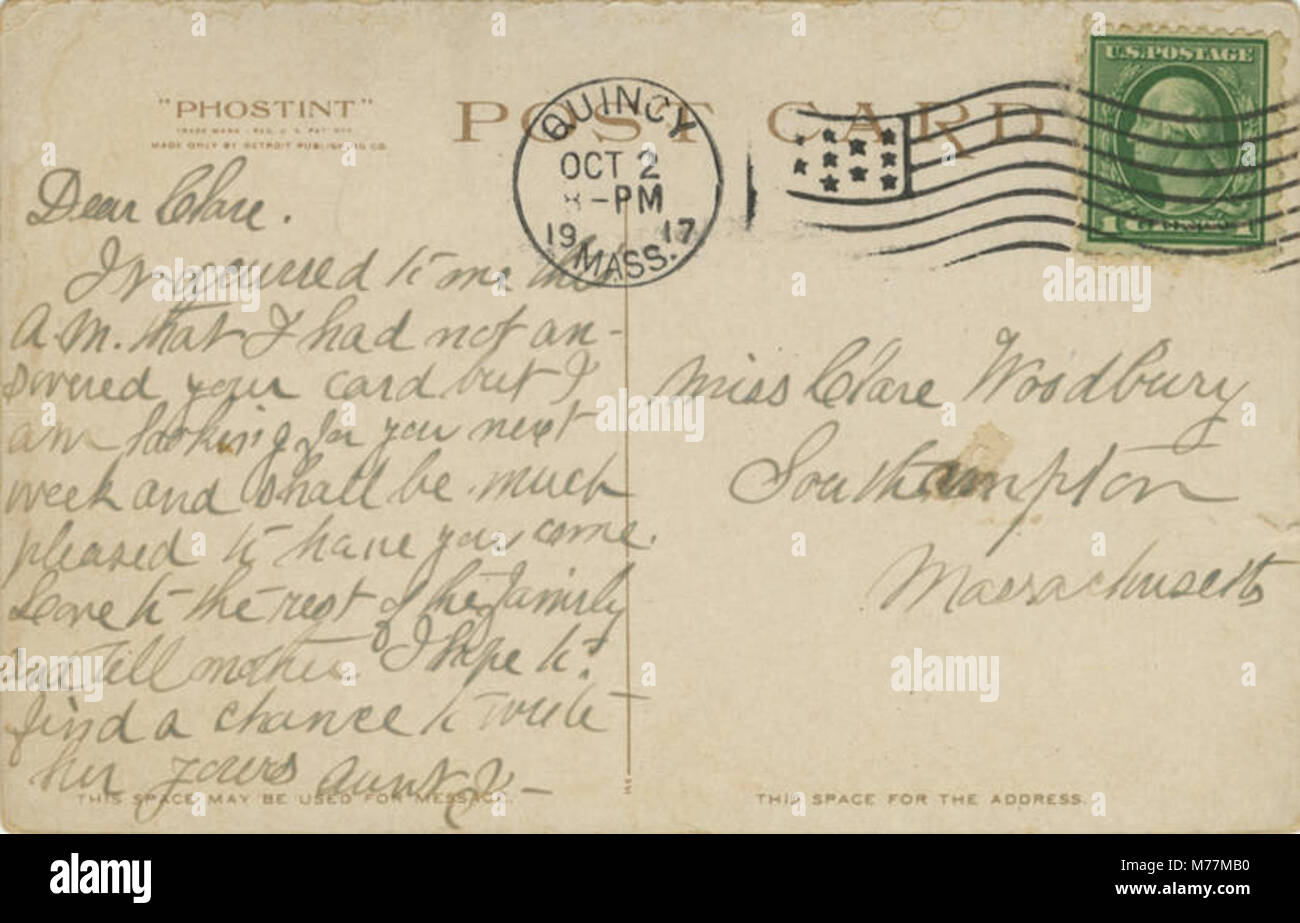 "PHOSTINT"
TRADE MARK - REG. U.S. PAT. OFF.
MADE ONLY BY DETROIT PUBLISHING CO.
POST CARD
QUINCY
OCT 2
8-PM
1917
MASS.
U.S. POSTAGE
1 CENT 1
Dear Clare.
It occurred to me this
A.M. that I had not an-
swered your card but I
am looking for you next
week and shall be much
pleased to have you come.
Love to the rest of the family
and tell mother I hope to
find a chance to write
her yours Aunt
Miss Clare Woodbury
Southampton
Massachusetts
THIS SPACE MAY BE USED FOR MESSAGE.
THIS SPACE FOR THE ADDRESS.
alamy
alamy stock photo
M77MB0
www.alamy.com